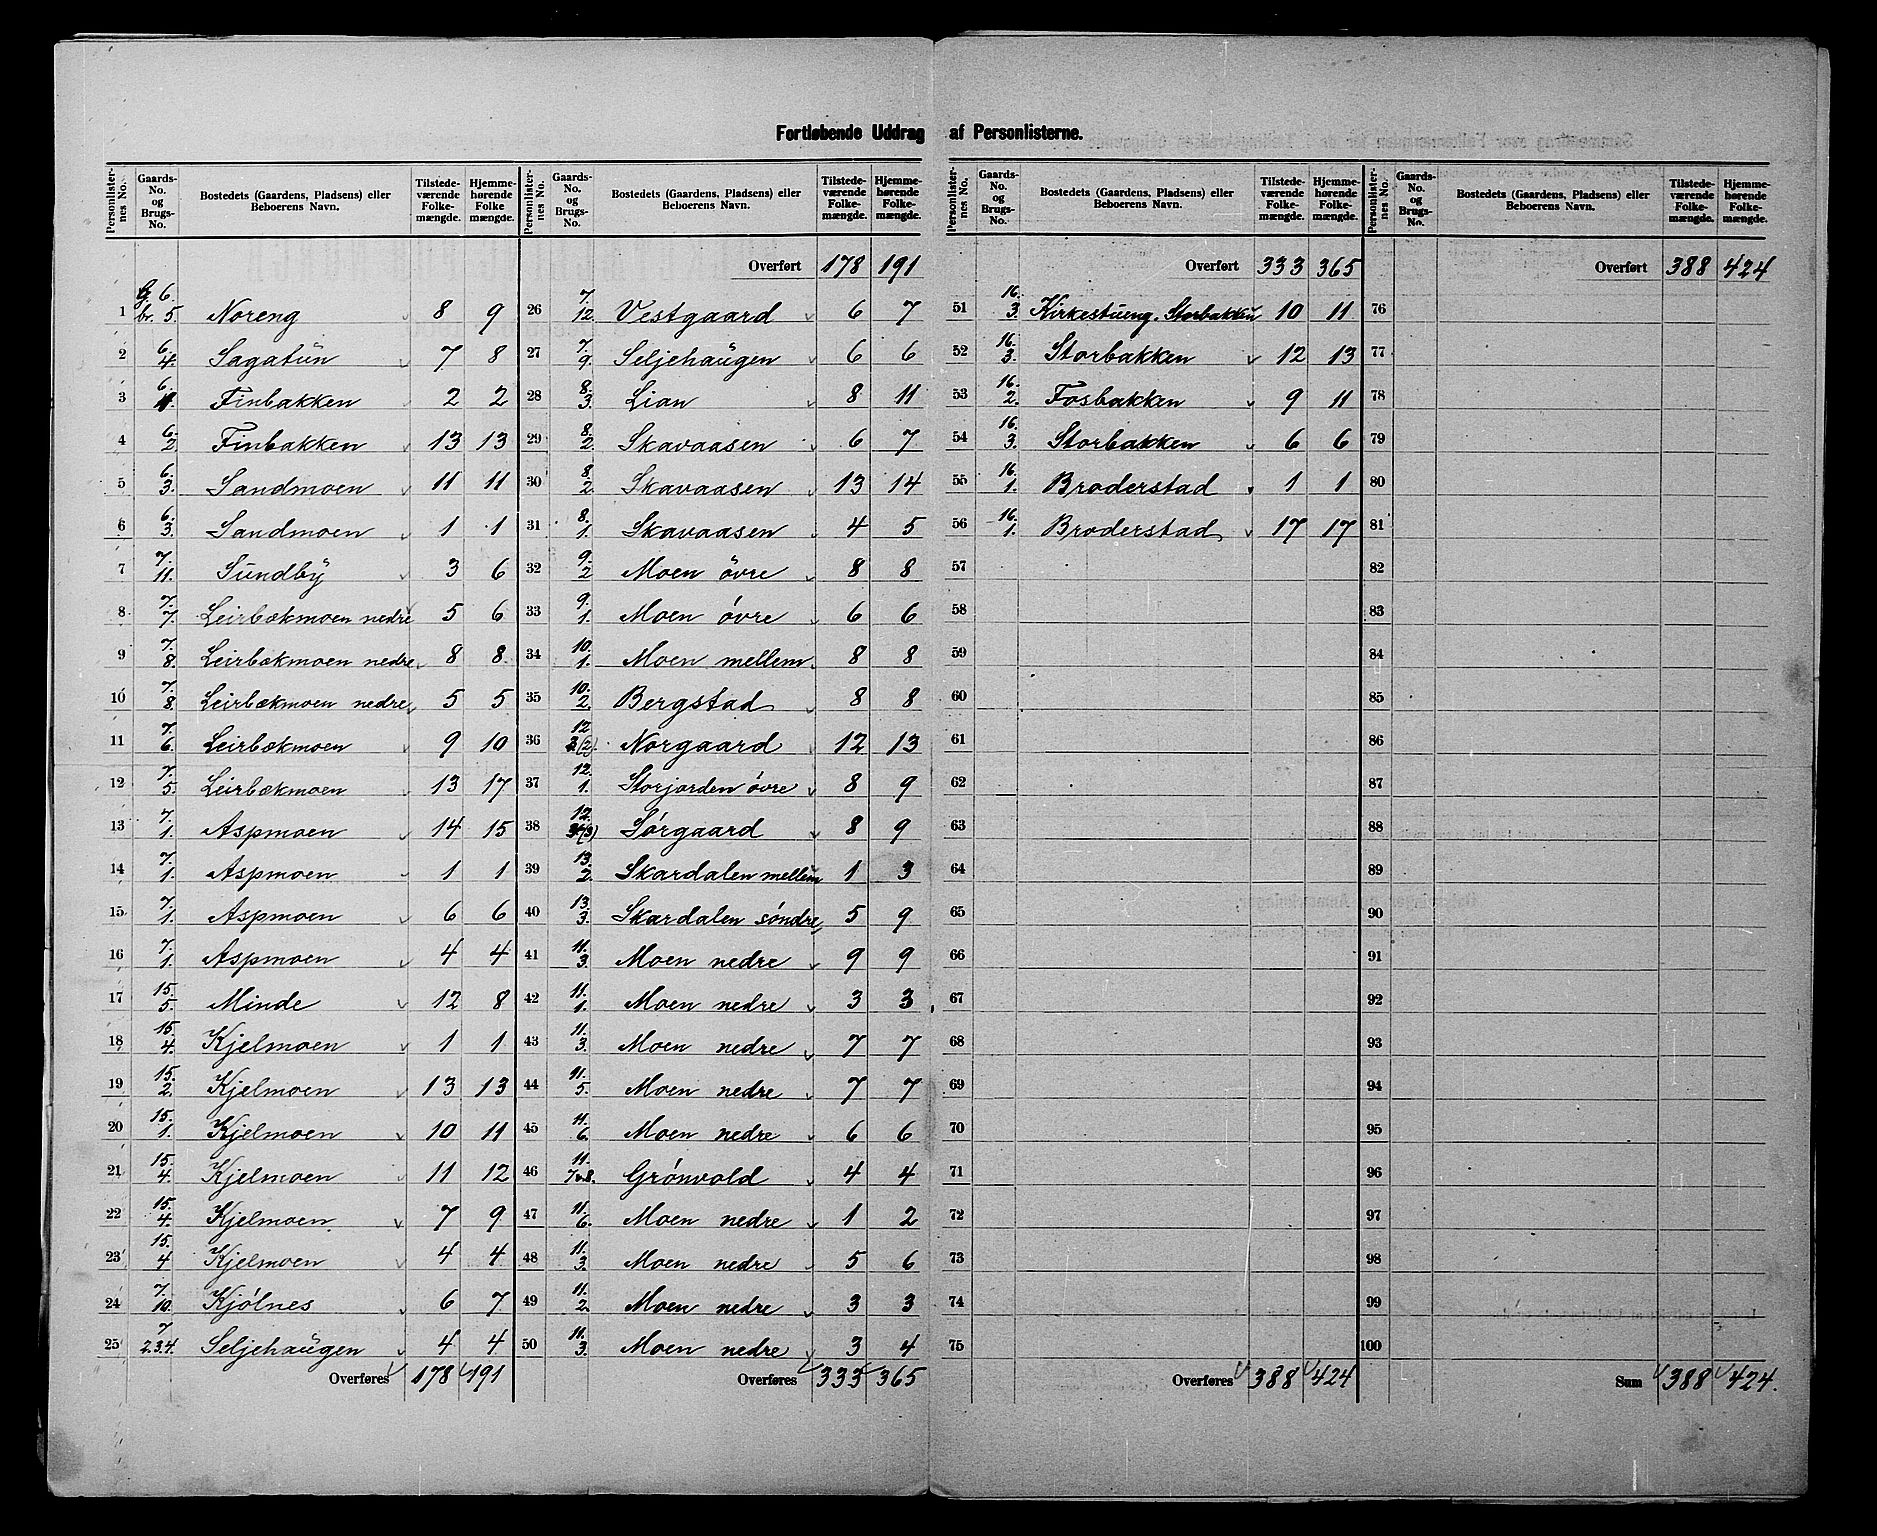 Fortløbende Uddrag af Personlisterne.
Personlister-nes No. | Gaards-No. og Brugs-No. | Bostedets (Gaardens, Pladsens) eller Beboerens Navn. | Tilstede-værende Folke-mængde. | Hjemme-hørende Folke mængde.
1 | G. 6. br. 5. | Noreng | 8 | 9
2 | 6. 4. | Sagatün | 7 | 8
3 | 6. 1. | Finbakken | 2 | 2
4 | 6. 2. | Finbakken | 13 | 13
5 | 6. 3. | Sandmoen | 11 | 11
6 | 6. 3. | Sandmoen | 1 | 1
7 | 7. 11. | Sundby | 3 | 6
8 | 7. 7. | Leirbækmoen nedre | 5 | 6
9 | 7. 8. | Leirbækmoen nedre | 8 | 8
10 | 7. 8. | Leirbækmoen nedre | 5 | 5
11 | 7. 6. | Leirbækmoen | 9 | 10
12 | 7. 5. | Leirbækmoen | 13 | 17
13 | 7. 1. | Aspmoen | 14 | 15
14 | 7. 1. | Aspmoen | 1 | 1
15 | 7. 1. | Aspmoen | 6 | 6
16 | 7. 1. | Aspmoen | 4 | 4
17 | 15. 5. | Minde | 12 | 8
18 | 15. 4. | Kjelmoen | 1 | 1
19 | 15. 2. | Kjelmoen | 13 | 13
20 | 15. 1. | Kjelmoen | 10 | 11
21 | 15. 4. | Kjelmoen | 11 | 12
22 | 15. 4. | Kjelmoen | 7 | 9
23 | 15. 4 | Kjelmoen | 4 | 4
24 | 7. 10. | Kjólnes | 6 | 7
25 | 7 2.3.4. | Seljehaügen | 4 | 4
Overføres 178 191
Personlister-nes No. | Gaards-No. og Brugs-No. | Bostedets (Gaardens, Pladsens) eller Beboerens Navn. | Tilstede-værende Folke-mængde. | Hjemme-hørende Folke-mængde.
Overført 178 191
26 | 7. 12. | Vestgaard | 6 | 7
27 | 7. 9. | Seljehaügen | 6 | 6
28 | 8. 3. | Lian | 8 | 11
29 | 8. 2. | Skavaasen | 6 | 7
30 | 8. 2. | Skavaasen | 13 | 14
31 | 8. 1. | Skavaasen | 4 | 5
32 | 9. 2 | Moen óvre | 8 | 8
33 | 9. 1. | Moen óvre | 6 | 6
34 | 10. 1. | Moen mellem | 8 | 8
35 | 10. 2. | Bergstad | 8 | 8
36 | 12 (2). | Norgaard | 12 | 13
37 | 12. 1. | Storjorden óvre | 8 | 9
38 | 12. (3) | Sórgaard | 8 | 9
39 | 13. 2. | Skardalen mellem | 1 | 3
40 | 13. 3. | Skardalen sóndre | 5 | 9
41 | 11. 3. | Moen nedre | 9 | 9
42 | 11. 1. | Moen nedre | 3 | 3
43 | 11. 3. | Moen nedre | 7 | 7
44 | 11. 5. | Moen nedre | 7 | 7
45 | 11. 6. | Moen nedre | 6 | 6
46 | 11. 7 8. | Grónvold | 4 | 4
47 | 11. 6. | Moen nedre | 1 | 2
48 | 11. 3. | Moen nedre | 5 | 6
49 | 11. 2. | Moen nedre | 3 | 3
50 | 11. 3. | Moen nedre | 3 | 4
Overføres 333 365
Personlister-nes No. | Gaards-No. og Brugs-No. | Bostedets (Gaardens, Pladsens) eller Beboerens Navn. | Tilstede-værende Folke-mængde. | Hjemme-hørende Folke-mængde.
Overført 333 365
51 | 16. 3. | Kirkestueng. Storbakken | 10 | 11
52 | 16. 3. | Storbakken | 12 | 13
53 | 16. 2. | Fosbakken | 9 | 11
54 | 16. 3. | Storbakken | 6 | 6
55 | 16. 1. | Broderstad | 1 | 1
56 | 16. 1. | Broderstad | 17 | 17
57
58
59
60
61
62
63
64
65
66
67
68
69
70
71
72
73
74
75
Overføres 388 424
Personlister-nes No. | Gaards-No. og Brugs-No. | Bostedets (Gaardens, Pladsens) eller Beboerens Navn. | Tilstede-værende Folke-mængde. | Hjemme-hørende Folke-mængde.
Overført 388 424
76
77
78
79
80
81
82
83
84
85
86
87
88
89
90
91
92
93
94
95
96
97
98
99
100
Sum 388 424.